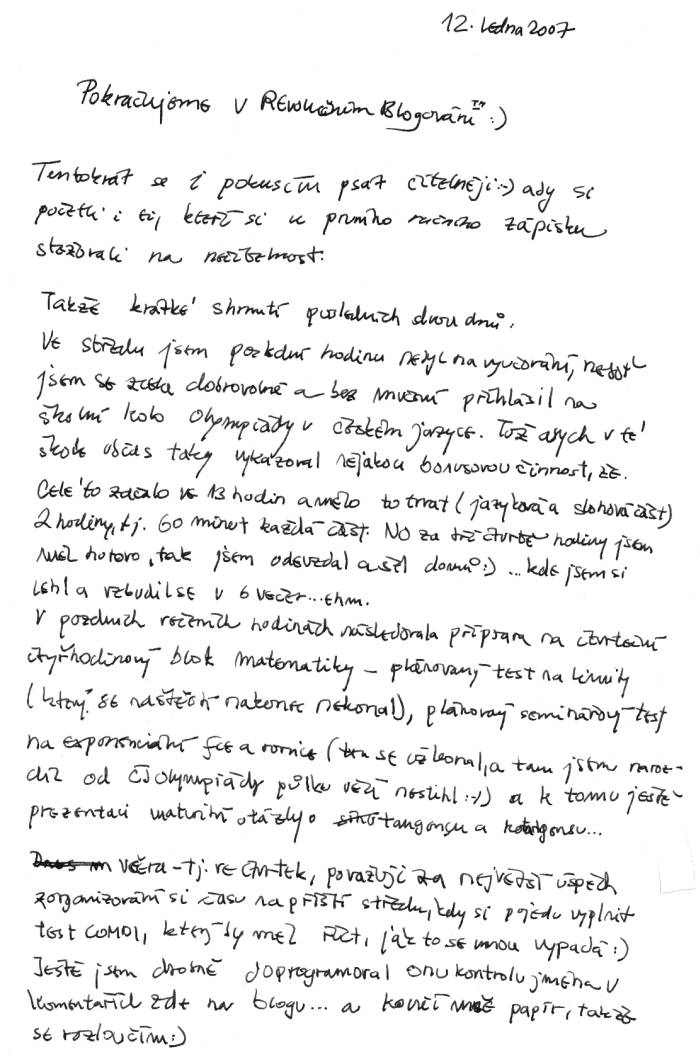 12. ledna 2007
Pokračujeme v Revolučním Blogování™ :)
Tentokrát se i pokusím psát čitelněji :-) aby si
početli i ti, kteří si u prvního ručního zápisku
stěžovali na nečitelnost.
Takže krátké shrnutí posledních dvou dnů.
Ve středu jsem poslední hodinu nebyl na vyučování, neboť
jsem se zcela dobrovolně a bez mučení přihlásil na
školní kolo Olympiády v českém jazyce. Tož abych v té
škole občas taky vykazoval nějakou bonusovou činnost, že.
Celé to začalo ve 13 hodin a mělo to trvat (jazyková a slohová část)
2 hodiny, tj. 60 minut každá část. No za tři čtvrtě hodiny jsem
měl hotovo, tak jsem odevzdal a šel domů :) ... kde jsem si
lehl a vzbudil se v 6 večer... ehm.
V pozdních večerních hodinách následovala příprava na čtvrteční
čtyřhodinový blok matematiky – plánovaný test na limity
(který se naštěstí nakonec nekonal), plánovaný seminární test
na exponenciální fce a rovnice (ten se už konal, a tam jsem naroz-
díl od ČJ olympiády půlku věcí nestihl :-/) a k tomu ještě
prezentaci maturitní otázky o tangensu a kotangensu...
včera – tj. ve čtvrtek, považuji za největší úspěch
zorganizování si času na příští středu, kdy si pojedu vyplnit
test COMDI, který by měl říct, jak to se mnou vypadá :)
Ještě jsem drobně doprogramoval onu kontrolu jména v
komentářích zde na blogu... a končí mně papír, takže
se rozloučím :)